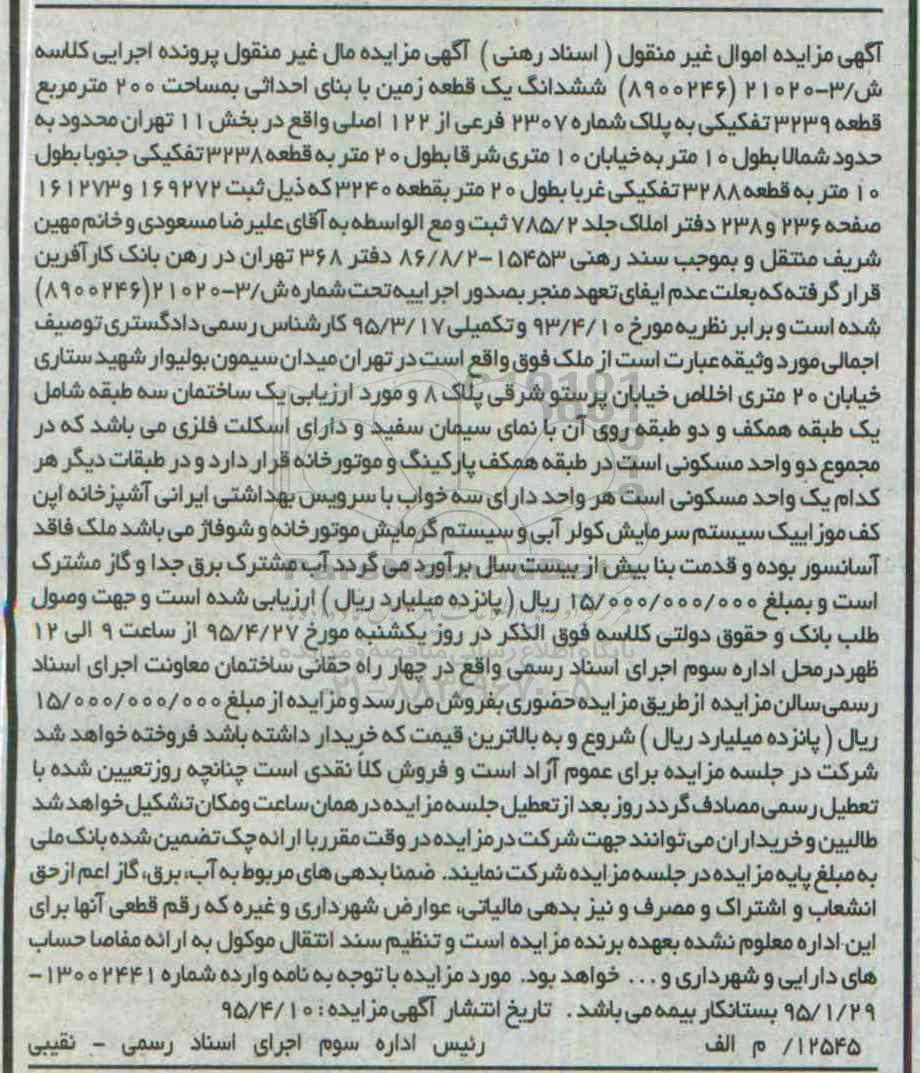 آگهی مزایده اموال غیر منقول ( اسناد رهنی ) آگهی مزایده مال غیر منقول پرونده اجرایی کلاسه
ش/۳-۲۱۰۲۰ (۸۹۰۰۲۴۶) ششدانگ یک قطعه زمین با بنای احداثی بمساحت ۲۰۰ مترمربع
قطعه ۳۲۳۹ تفکیکی به پلاک شماره ۲۳۰۷ فرعی از ۱۲۲ اصلی واقع در بخش ۱۱ تهران محدود به
حدود شمالا بطول ۱۰ متر به خیابان ۱۰ متری شرقا بطول ۲۰ متر به قطعه ۳۲۳۸ تفکیکی جنوبا بطول
۱۰ متر به قطعه ۳۲۸۸ تفکیکی غربا بطول ۲۰ متر بقطعه ۳۲۴۰ که ذیل ثبت ۱۶۹۲۷۲ و ۱۶۱۲۷۳
صفحه ۲۳۶ و ۲۳۸ دفتر املاک جلد ۷۸۵/۲ ثبت و مع الواسطه به آقای علیرضا مسعودی و خانم مهین
شریف منتقل و بموجب سند رهنی ۱۵۴۵۳-۸۶/۸/۲ دفتر ۳۶۸ تهران در رهن بانک کارآفرین
قرار گرفته که بعلت عدم ایفای تعهد منجر بصدور اجراییه تحت شماره ش/۳-۲۱۰۲۰(۸۹۰۰۲۴۶)
شده است و برابر نظریه مورخ ۹۳/۴/۱۰ و تکمیلی ۹۵/۳/۱۷ کارشناس رسمی دادگستری توصیف
اجمالی مورد وثیقه عبارت است از ملک فوق واقع است در تهران میدان سیمون بولیوار شهید ستاری
خیابان ۲۰ متری اخلاص خیابان پرستو شرقی پلاک ۸ و مورد ارزیابی یک ساختمان سه طبقه شامل
یک طبقه همکف و دو طبقه روی آن با نمای سیمان سفید و دارای اسکلت فلزی می باشد که در
مجموع دو واحد مسکونی است در طبقه همکف پارکینگ و موتورخانه قرار دارد و در طبقات دیگر هر
کدام یک واحد مسکونی است هر واحد دارای سه خواب با سرویس بهداشتی ایرانی آشپزخانه اپن
کف موزاییک سیستم سرمایش کولر آبی و سیستم گرمایش موتورخانه و شوفاژ می باشد ملک فاقد
آسانسور بوده و قدمت بنا بیش از بیست سال برآورد می گردد آب مشترک برق جدا و گاز مشترک
است و بمبلغ ۱۵/۰۰۰/۰۰۰/۰۰۰ ریال ( پانزده میلیارد ریال ) ارزیابی شده است و جهت وصول
طلب بانک و حقوق دولتی کلاسه فوق الذکر در روز یکشنبه مورخ ۹۵/۴/۲۷ از ساعت ۹ الی ۱۲
ظهر درمحل اداره سوم اجرای اسناد رسمی واقع در چهار راه حقانی ساختمان معاونت اجرای اسناد
رسمی سالن مزایده ازطریق مزایده حضوری بفروش می رسد و مزایده از مبلغ ۱۵/۰۰۰/۰۰۰/۰۰۰
ریال ( پانزده میلیارد ریال ) شروع و به بالاترین قیمت که خریدار داشته باشد فروخته خواهد شد
شرکت در جلسه مزایده برای عموم آزاد است و فروش کلاً نقدی است چنانچه روزتعیین شده با
تعطیل رسمی مصادف گردد روز بعد ازتعطیل جلسه مزایده درهمان ساعت ومکان تشکیل خواهد شد
طالبین و خریداران می توانند جهت شرکت درمزایده در وقت مقرربا ارائه چک تضمین شده بانک ملی
به مبلغ پایه مزایده در جلسه مزایده شرکت نمایند. ضمنا بدهی های مربوط به آب، برق، گاز اعم ازحق
انشعاب و اشتراک و مصرف و نیز بدهی مالیاتی، عوارض شهرداری و غیره که رقم قطعی آنها برای
این اداره معلوم نشده بعهده برنده مزایده است و تنظیم سند انتقال موکول به ارائه مفاصا حساب
های دارایی و شهرداری و... خواهد بود. مورد مزایده با توجه به نامه وارده شماره ۱۳۰۰۲۴۴۱-
۹۵/۱/۲۹ بستانکار بیمه می باشد . تاریخ انتشار آگهی مزایده : ۹۵/۴/۱۰
۱۲۵۴۵/ م الف رئیس اداره سوم اجرای اسناد رسمی - نقیبی
پایگاه اطلاع رسانی مناقصه و مزایده
۰۲۱-۸۸۳۴۹۶۷۰-۸